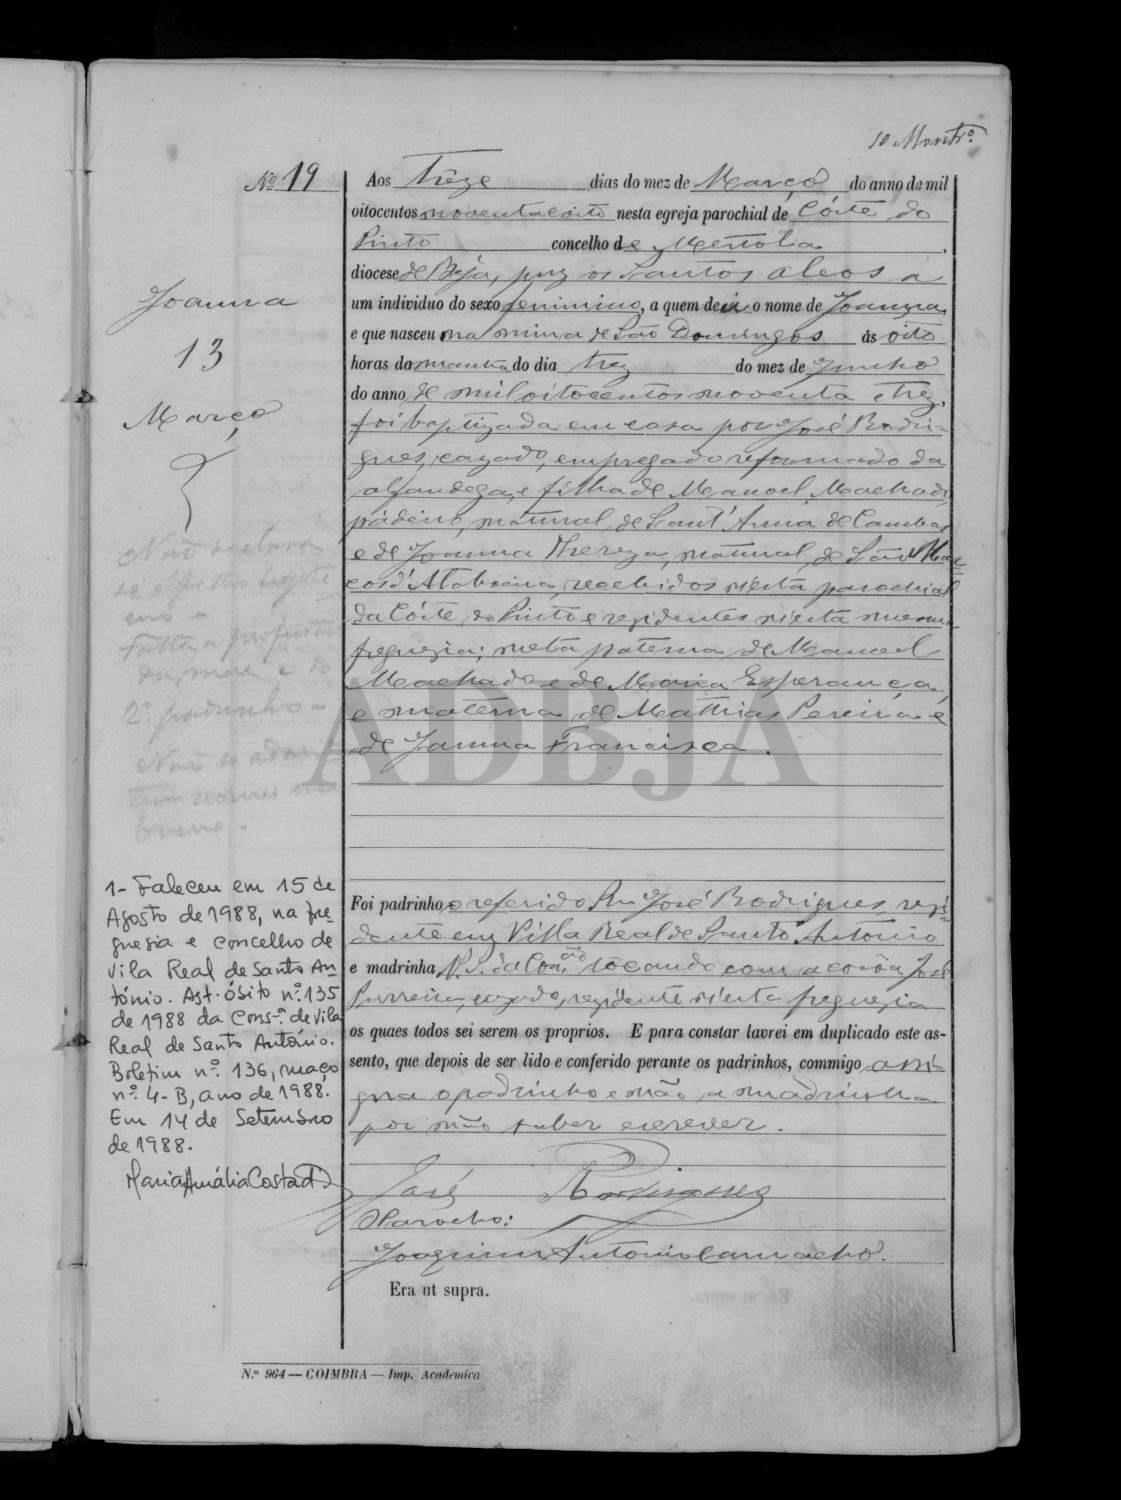 10 Montrº.
Nº 19
Aos Treze dias do mez de Março do anno de mil
oitocentos noventa e oito nesta egreja parochial de Córte do
Pinto concelho de Mertola,
diocese de Beja, puz os Santos oleos a
um individuo do sexo feminino, a quem dei o nome de Joanna,
e que nasceu na mina de São Domingos ás oito
horas da manhã do dia trez do mez de Junho
do anno de mil oitocentos noventa e trez,
foi baptizada em casa por José Rodri-
gues, cazado, empregado reformado da
alfandega, e filha de Manoel Machado,
pádeiro, natural de Sant'Anna de Cambas
e de Joanna Thereza, natural de São Mar-
cos d'Atabueira, recebidos n'esta parochial
da Córte do Pinto e rezidentes n'esta mesma
freguezia; neta paterna de Manoel
Machado e de Maria Esperança,
e materna de Mathias Pereira e
de Janna Francisca.
Foi padrinho o referido José Rodrigues, rezi-
dente em Villa Real de Santo Antonio
e madrinha N. S. da Conção tocando com a corôa José
Parreira, cazado, rezidente n'esta freguezia
os quaes todos sei serem os proprios. E para constar lavrei em duplicado este as-
sento, que depois de ser lido e conferido perante os padrinhos, commigo assi-
gna o padrinho e não a madrinha
por não saber escrever.
José Rodrigues
O Parocho:
Joaquim Antonio Camacho.
Era ut supra.
Joanna
13
Março
Não declara
Falta a profissão
da mãe e do
2º padrinho
1- Faleceu em 15 de
Agosto de 1988, na fre-
guesia e concelho de
Vila Real de Santo An-
tónio. Ast. óbito nº 135
de 1988 da Cons.ª de Vila
Real de Santo António.
Boletim nº 136, maço
nº 4-B, ano de 1988.
Em 14 de Setembro
de 1988.
Maria Amália Costa
N.º 964 — COIMBRA — Imp. Academica
ADBJA